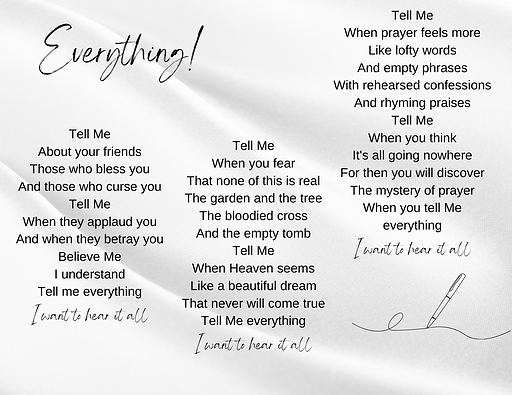 Everything!
Tell Me
About your friends
Those who bless you
And those who curse you
Tell Me
When they applaud you
And when they betray you
Believe Me
I understand
Tell me everything
I want to hear it all
Tell Me
When you fear
That none of this is real
The garden and the tree
The bloodied cross
And the empty tomb
Tell Me
When Heaven seems
Like a beautiful dream
That never will come true
Tell Me everything
I want to hear it all
Tell Me
When prayer feels more
Like lofty words
And empty phrases
With rehearsed confessions
And rhyming praises
Tell Me
When you think
It's all going nowhere
For then you will discover
The mystery of prayer
When you tell Me
everything
I want to hear it all